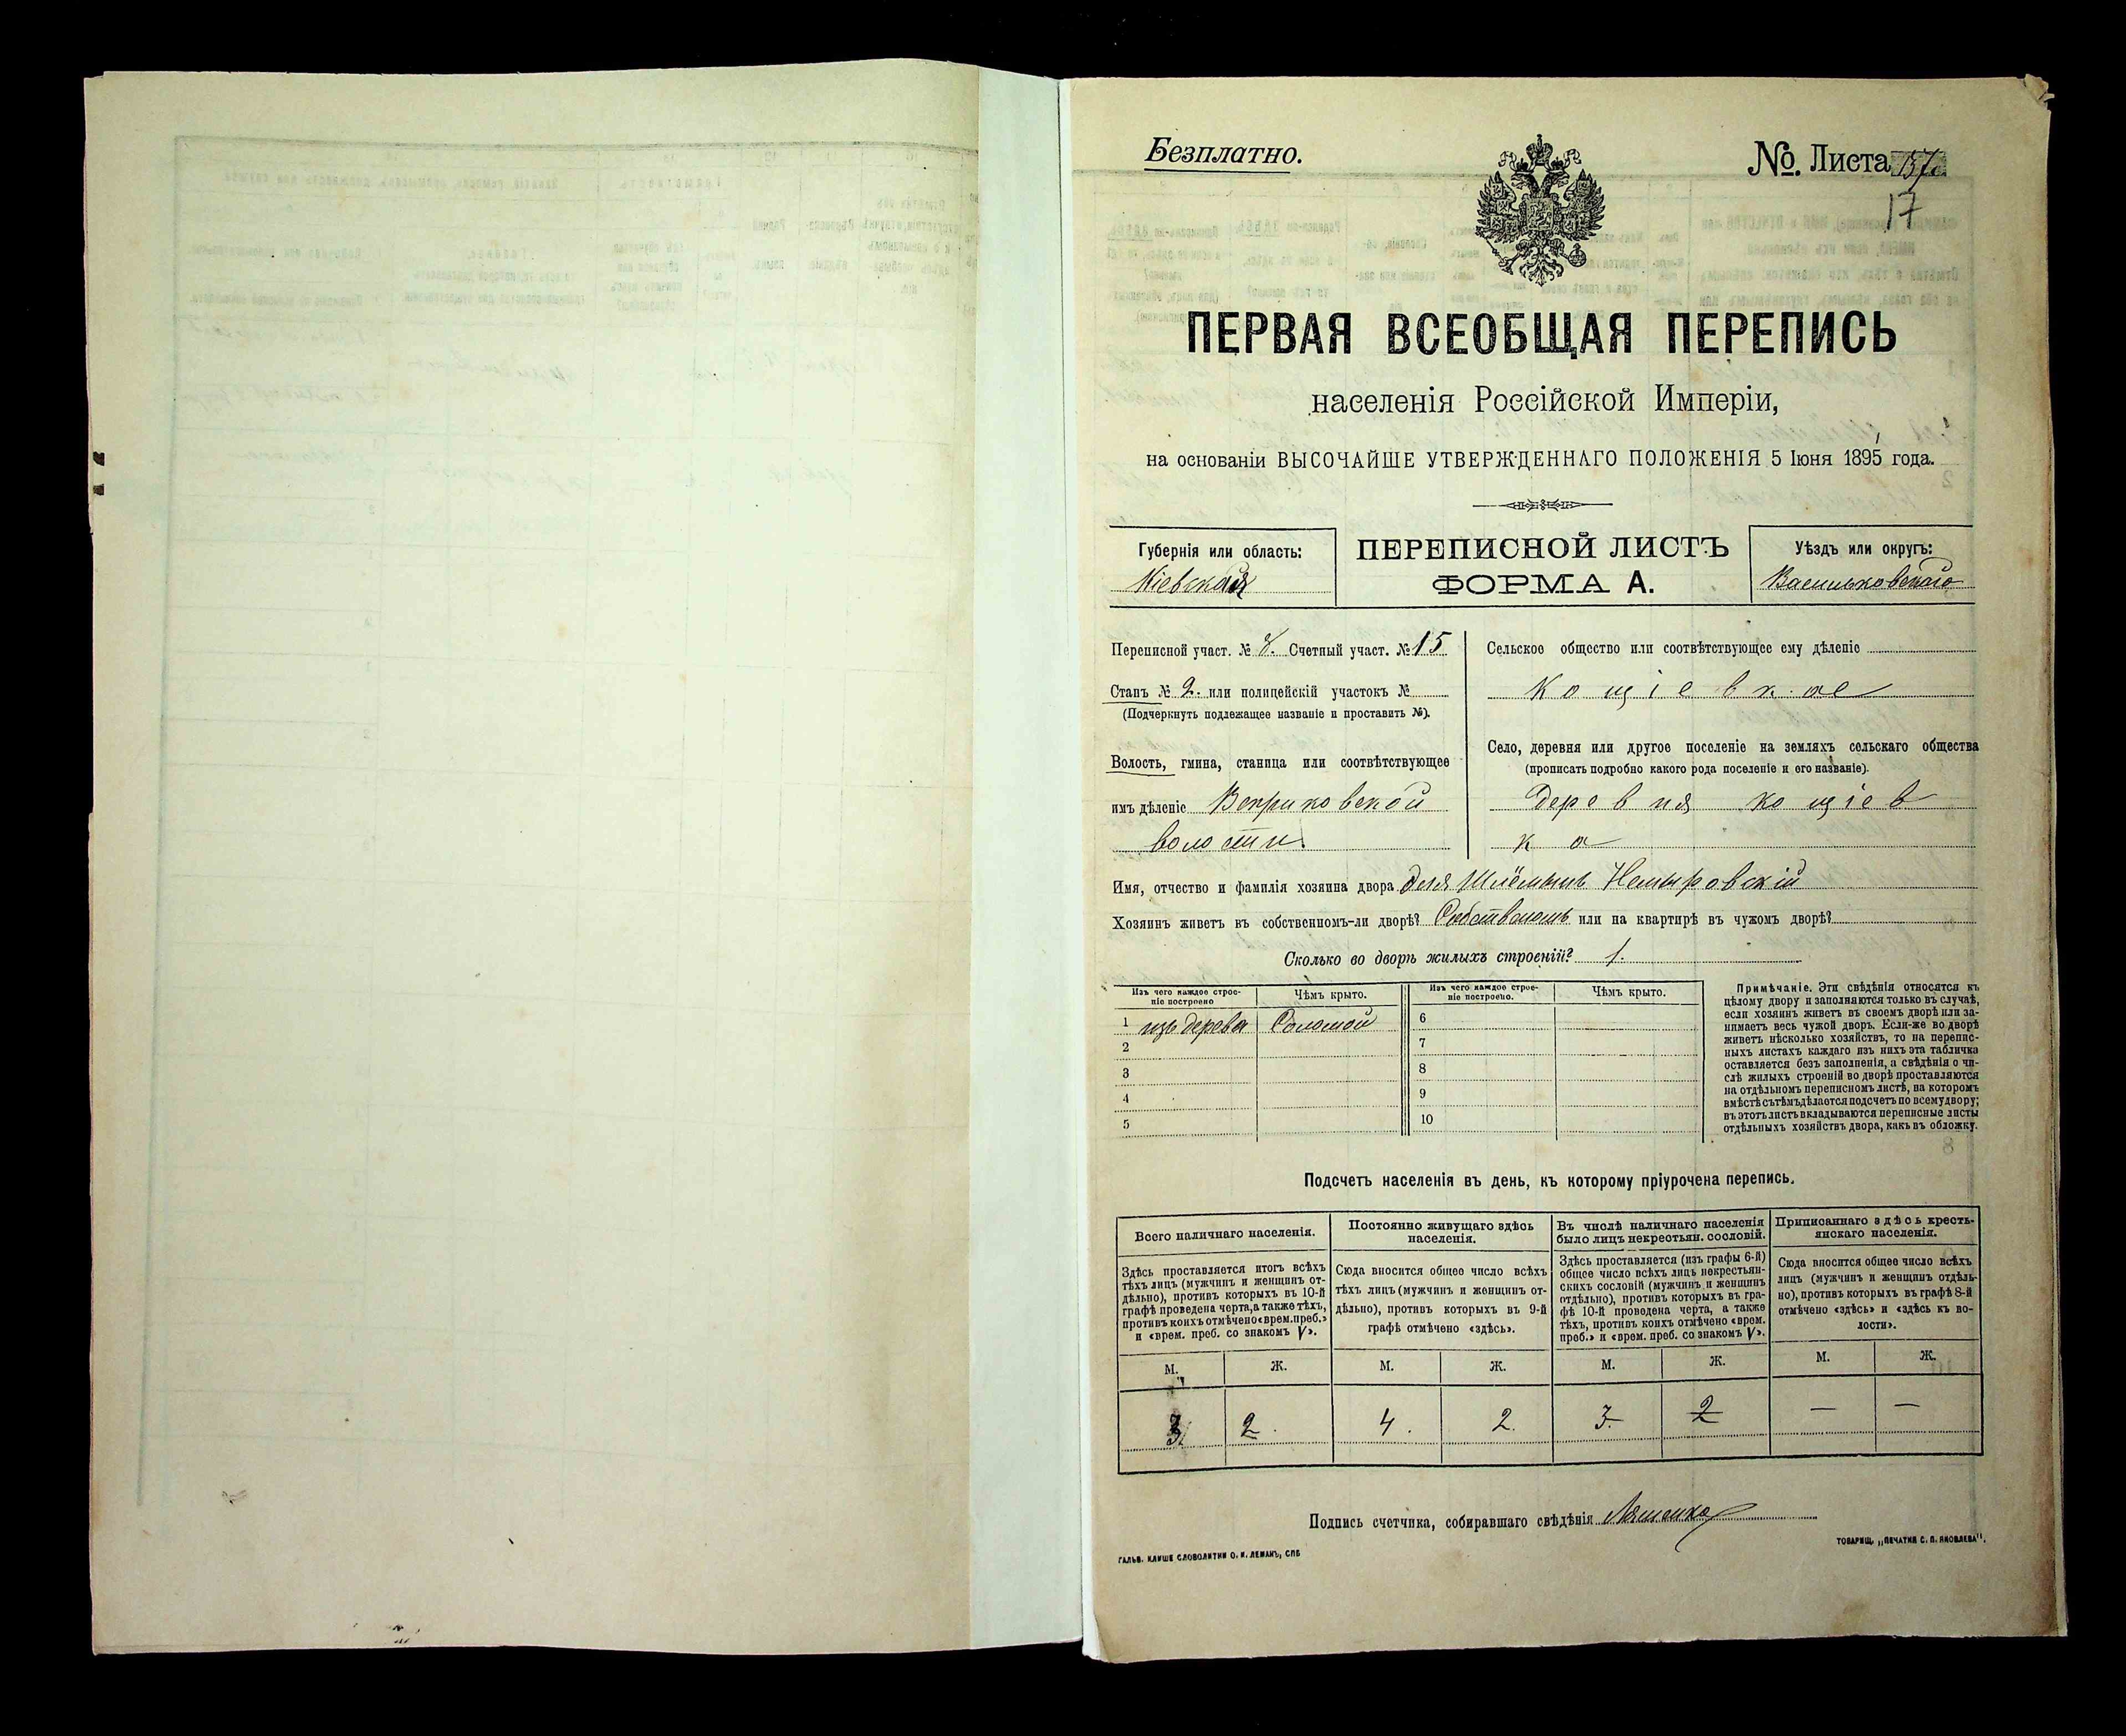 Безплатно.
№. Листа
17
ПЕРВАЯ ВСЕОБЩАЯ ПЕРЕПИСЬ
населенія Россійской Имперіи,
на основаніи ВЫСОЧАЙШЕ УТВЕРЖДЕННАГО ПОЛОЖЕНІЯ 5 Іюня 1895 года.
Губернія или область:
Кіевская
ПЕРЕПИСНОЙ ЛИСТЪ
ФОРМА А.
Уѣздъ или округъ:
Васильковскаго
Переписной участ. № 8. Счетный участ. № 15
Станъ № 2. или полицейскій участокъ №
(Подчеркнуть подлежащее названіе и проставить №).
Волость, гмина, станица или соотвѣтствующее
имъ дѣленіе Веприковской
волости.
Сельское общество или соотвѣтствующее ему дѣленіе
Кощіевкае
Село, деревня или другое поселеніе на земляхъ сельскаго общества
(прописать подробно какого рода поселеніе и его названіе).
деревня кощіев
ка
Имя, отчество и фамилія хозяина двора Шлёмынъ Немыровскій
Хозяинъ живетъ въ собственномъ-ли дворѣ? или на квартирѣ въ чужомъ дворѣ?
Сколько во дворѣ жилыхъ строеній? 1.
Изъ чего каждое строе-
ніе построено
Чѣмъ крыто.
1 изъ дерева Соломой
2
3
4
5
Изъ чего каждое строе-
ніе построено.
Чѣмъ крыто.
6
7
8
9
10
Примѣчаніе. Эти свѣдѣнія относятся къ
цѣлому двору и заполняются только въ случаѣ,
если хозяинъ живетъ въ своемъ дворѣ или за-
нимаетъ весь чужой дворъ. Если-же во дворѣ
живетъ нѣсколько хозяйствъ, то на перепис-
ныхъ листахъ каждаго изъ нихъ эта табличка
оставляется безъ заполненія, а свѣдѣнія о чи-
слѣ жилыхъ строеній во дворѣ проставляются
на отдѣльномъ переписномъ листѣ, на которомъ
вмѣстѣ съ тѣмъ дѣлается подсчетъ по всему двору;
въ этотъ листъ вкладываются переписные листы
отдѣльныхъ хозяйствъ двора, какъ въ обложку.
Подсчетъ населенія въ день, къ которому пріурочена перепись.
Всего наличнаго населенія.
Здѣсь проставляется итогъ всѣхъ
тѣхъ лицъ (мужчинъ и женщинъ от-
дѣльно), противъ которыхъ въ 10-й
графѣ проведена черта, а также тѣхъ,
противъ коихъ отмѣчено «врем. преб.»
и «врем. преб. со знакомъ V».
М. Ж.
3 2.
Постоянно живущаго здѣсь
населенія.
Сюда вносится общее число всѣхъ
тѣхъ лицъ (мужчинъ и женщинъ от-
дѣльно), противъ которыхъ въ 9-й
графѣ отмѣчено «здѣсь».
М. Ж.
4. 2.
Въ числѣ наличнаго населенія
было лицъ некрестьян. сословій.
Здѣсь проставляется (изъ графы 6-й)
общее число всѣхъ лицъ некрестьян-
скихъ сословій (мужчинъ и женщинъ
отдѣльно), противъ которыхъ въ гра-
фѣ 10-й проведена черта, а также
тѣхъ, противъ коихъ отмѣчено «врем.
преб.» и «врем. преб. со знакомъ V».
М. Ж.
3. 2
Приписаннаго здѣсь кресть-
янскаго населенія.
Сюда вносится общее число всѣхъ
лицъ (мужчинъ и женщинъ отдѣль-
но), противъ которыхъ въ графѣ 8-й
отмѣчено «здѣсь» и «здѣсь къ во-
лости».
М. Ж.
— —
Подпись счетчика, собиравшаго свѣдѣнія
ГАЛЬВ. КЛИШЕ СЛОВОЛИТНИ О. И. ЛЕМАНЪ, СПБ
ТОВАРИЩ. „ПЕЧАТНЯ С. П. ЯКОВЛЕВА".